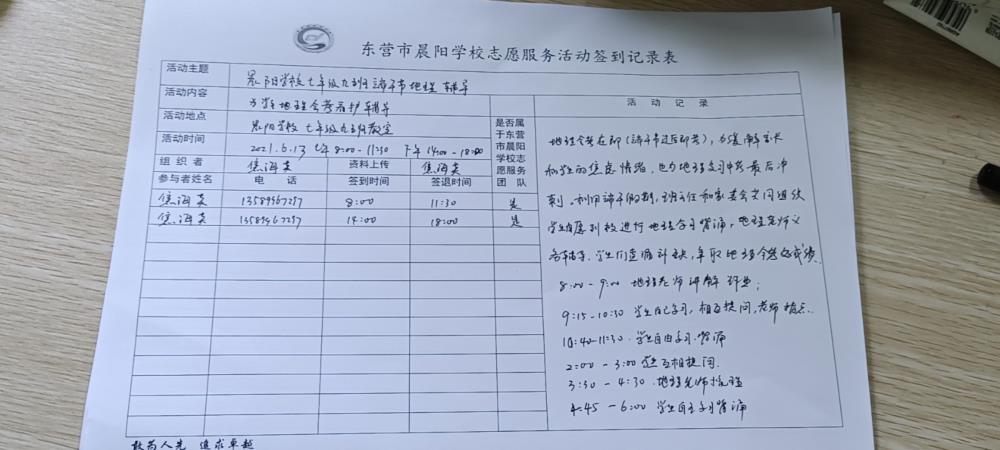 东营市晨阳学校志愿服务活动签到记录表
活动主题 晨阳学校七年级九班端午节地理辅导
活动内容 为学生地理会考看护辅导
活动地点 晨阳学校七年级九班教室
活动时间 2021.6.13 上午 8:00-11:30 下午 14:00-18:00
组织者 焦海英 资料上传 焦海英
参与者姓名 电话 签到时间 签退时间 是否属于东营市晨阳学校志愿服务团队
焦海英 13589967297 8:00 11:30 是
焦海英 13589967297 14:00 18:00 是
活动记录
地理会考在即(端午节过后即考),为缓解家长
和学生的焦虑情绪,也为地理复习中考最后冲
刺。利用端午假期,班主任和家委会共同组织
学生自愿到校进行地理学习背诵,地理老师义
务辅导.学生们查漏补缺,争取地理会考好成绩.
8:00-9:00 地理老师讲解
9:15-10:30 学生自己学习,相互提问,老师指点.
10:40-11:30.学生自由学习.背诵
2:00-3:00 学生互相提问.
3:30-4:30.地理老师
4:45-6:00 学生自主学习背诵
敢为人先 追求卓越